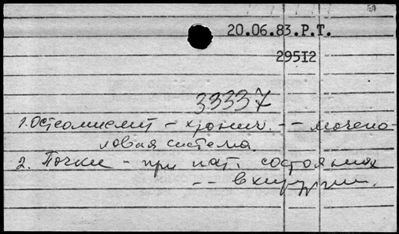 20.06.83.P.T.
295I2
33337
1. Остеомиелит - хронич. -- мочепо
ловая система.
2. Почки - при пат. состояниях
-- в хирургии.